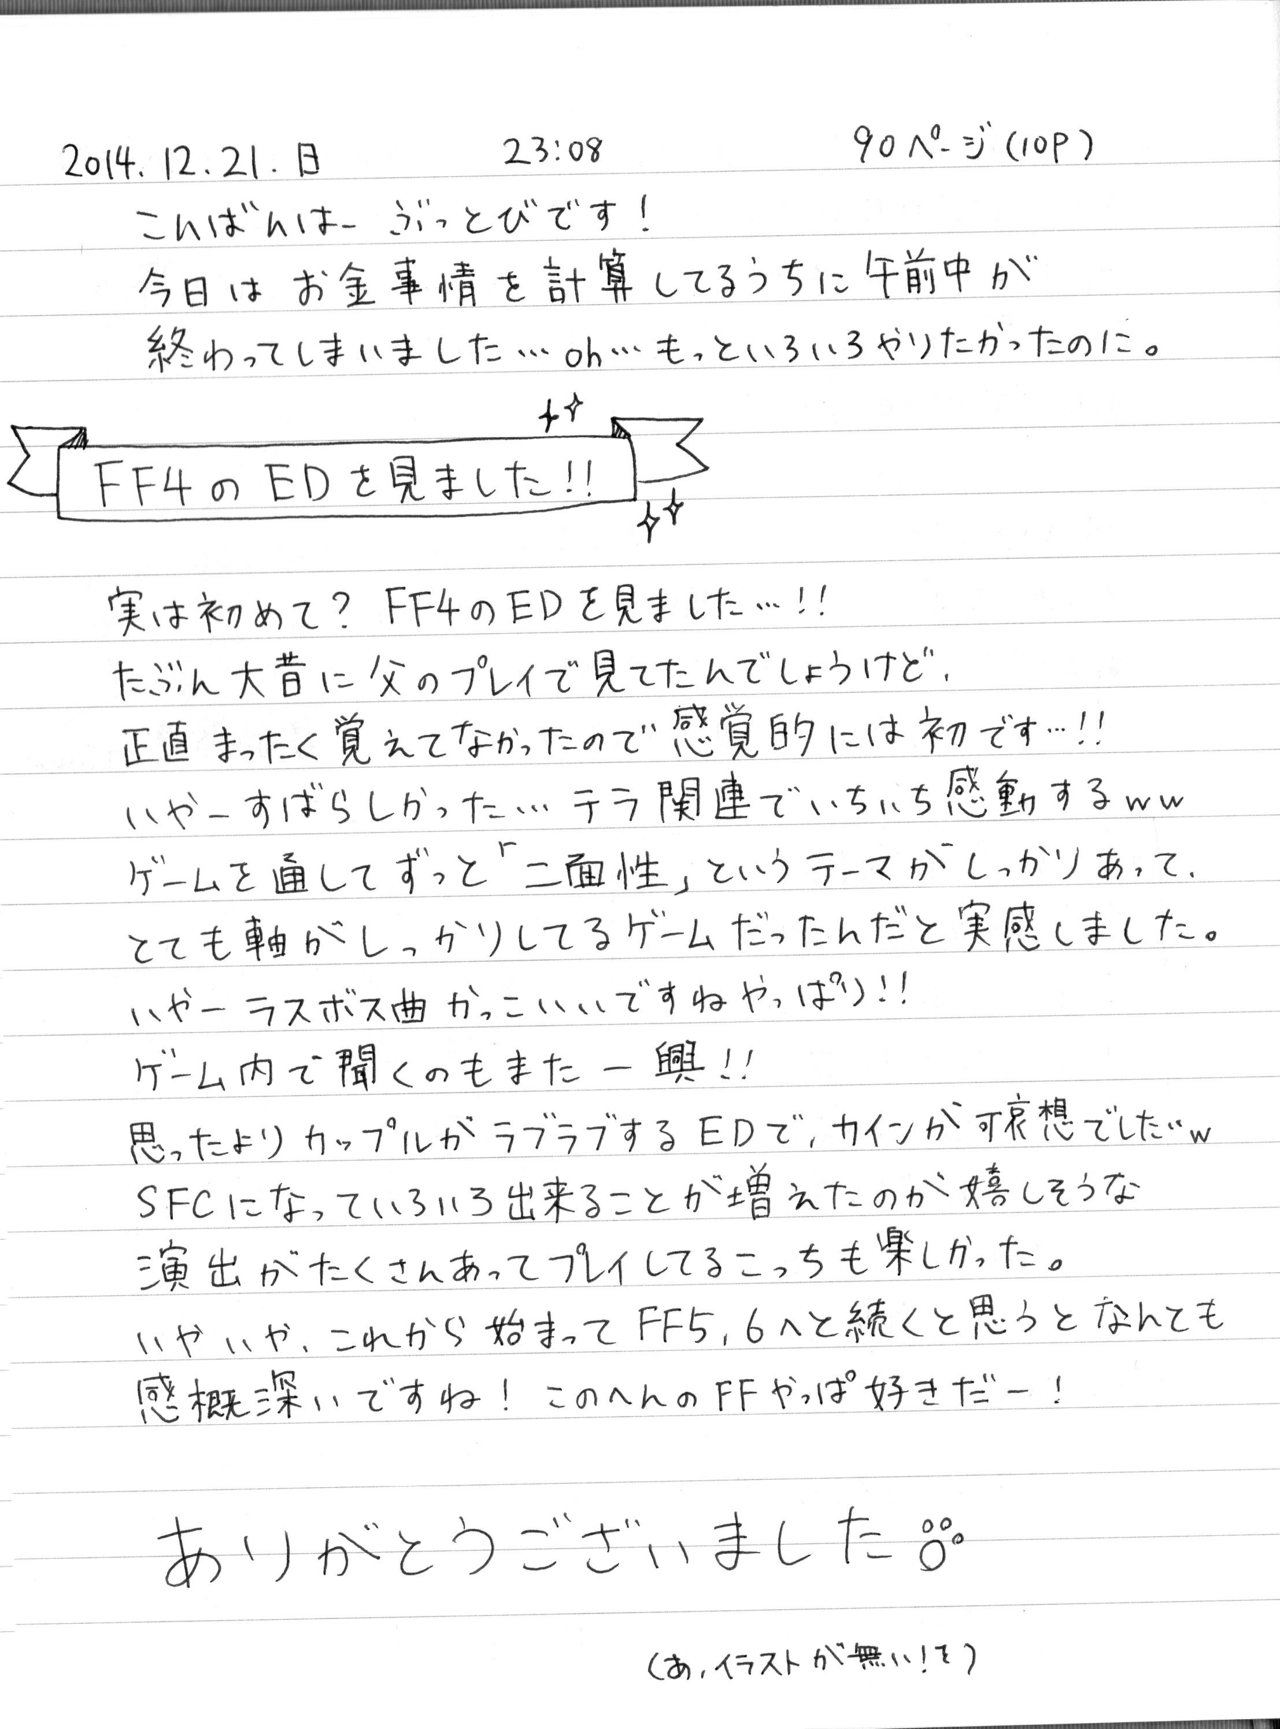 2014.12.21.日 23:08 90ページ(10P)
こんばんはー ぶっとびです!
今日は お金事情を計算してるうちに午前中が
終わってしまいました…oh…もっといろいろやりたかったのに。
FF4のEDを見ました!!
実は初めて? FF4のEDを見ました…!!
たぶん大昔に父のプレイで見てたんでしょうけど、
正直まったく覚えてなかったので感覚的には初です…!!
いやーすばらしかった…テラ関連でいちいち感動するww
ゲームを通してずっと「二面性」というテーマがしっかりあって、
とても軸がしっかりしてるゲームだったんだと実感しました。
いやーラスボス曲かっこいいですねやっぱり!!
ゲーム内で聞くのもまた一興!!
思ったよりカップルがラブラブするEDで、カインが可哀想でした…w
SFCになっていろいろ出来ることが増えたのが嬉しそうな
演出がたくさんあってプレイしてるこっちも楽しかった。
いやいや、これから始まってFF5,6へと続くと思うとなんても
感概深いですね! このへんのFFやっぱ好きだー!
ありがとうございました
(あ、イラストが無い!を)